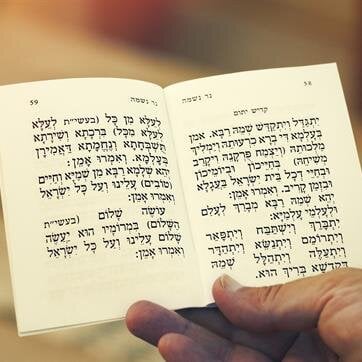 58 נר נשמה
קדיש יתום
יִתְגַּדַּל וְיִתְקַדַּשׁ שְׁמֵהּ רַבָּא. אמן
בְּעָלְמָא דִּי בְרָא כִרְעוּתֵהּ וְיַמְלִיךְ
מַלְכוּתֵהּ (וְיַצְמַח פֻּרְקָנֵהּ וִיקָרֵב
מְשִׁיחֵהּ) בְּחַיֵּיכוֹן וּבְיוֹמֵיכוֹן
וּבְחַיֵּי דְכָל בֵּית יִשְׂרָאֵל בַּעֲגָלָא
וּבִזְמַן קָרִיב. וְאִמְרוּ אָמֵן:
יְהֵא שְׁמֵהּ רַבָּא מְבָרַךְ לְעָלַם
וּלְעָלְמֵי עָלְמַיָּא:
יִתְבָּרַךְ וְיִשְׁתַּבַּח וְיִתְפָּאַר
וְיִתְרוֹמַם וְיִתְנַשֵּׂא וְיִתְהַדָּר
וְיִתְעַלֶּה וְיִתְהַלָּל שְׁמֵהּ
דְּקֻדְשָׁא בְּרִיךְ הוּא.
נר נשמה 59
לְעֵלָּא מִן כָּל (בעשי״ת לְעֵלָּא
לְעֵלָּא מִכָּל) בִּרְכָתָא וְשִׁירָתָא
תֻּשְׁבְּחָתָא וְנֶחֱמָתָא דַּאֲמִירָן
בְּעָלְמָא. וְאִמְרוּ אָמֵן:
יְהֵא שְׁלָמָא רַבָּא מִן שְׁמַיָּא וְחַיִּים
(טוֹבִים) עָלֵינוּ וְעַל כָּל יִשְׂרָאֵל
וְאִמְרוּ אָמֵן:
עוֹשֶׂה שָׁלוֹם (בעשי״ת
הַשָּׁלוֹם) בִּמְרוֹמָיו הוּא יַעֲשֶׂה
שָׁלוֹם עָלֵינוּ וְעַל כָּל יִשְׂרָאֵל
וְאִמְרוּ אָמֵן: